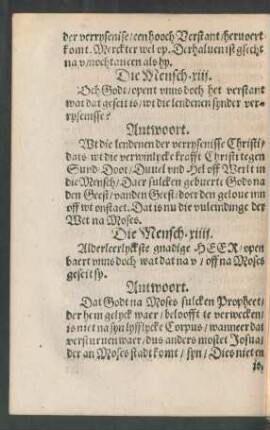 der verrysenise/ eenhooch Verstant/ hervoert
komt. Merckter wel op. Derhaluen ist gsecht
na v/ nochtancen als hy.
Die Mensch. xiij.
Och Godt/ opent vnns doch het verstant
wat dat geseit is/ wt die lendenen synder ver-
rysenisse?
Antwoort.
Wt die lendenen der verrysenisse Christi/
dats wt die verwinlycke krafft Christi tegen
Sund/ Doot/ Duuel vnd Hel off Werlt in
die Mensch/ Daer sulcken gebuerte Gods na
den Geest/ vanden Geest/ doer den geloue inn
off wt onstaet. Dat is nu die vuleindinge der
Wet na Moses.
Die Mensch. xiiij.
Alderleerlyckste gnadige HEER/ open
baert vnns doch wat dat na v/ off na Moses
geseit sy.
Antwoort.
Dat Godt na Moses sulcken Propheet/
der hem gelyck waer/ beloofft te verwecken/
is niet na syn lyfflycke Corpus/ wanneer dat
versturuen waer/ dus anders mostet Josua/
der an Moses stadt komt/ syn/ Dies niet en
is,